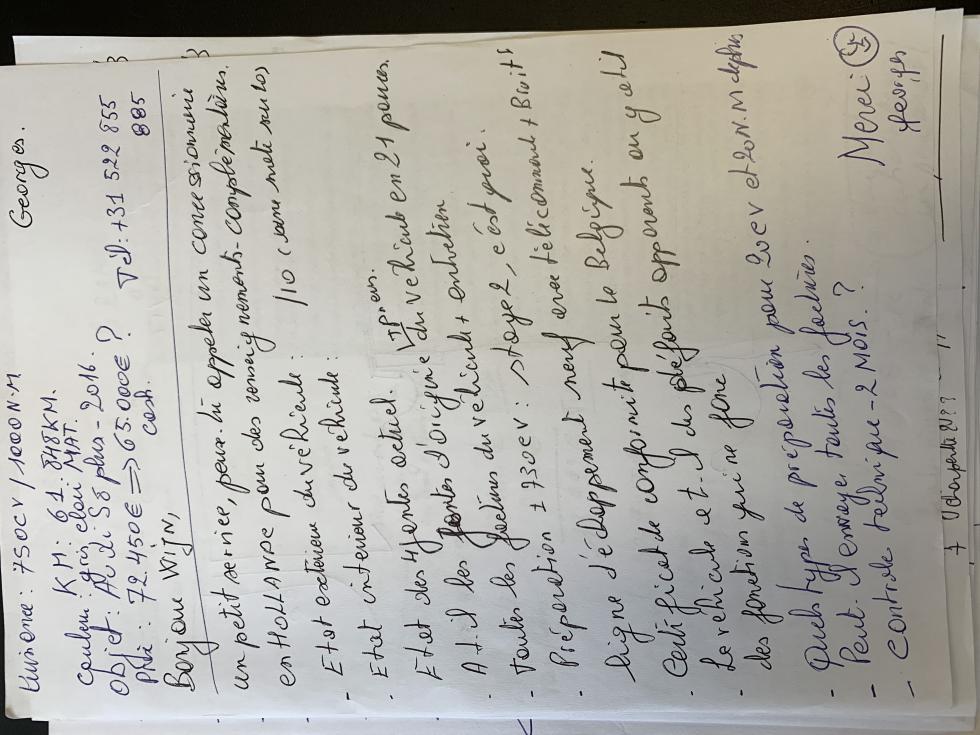 Puissance : 750CV / 1000N.M Georges.
KM : 61.848KM.
Couleur : gris clair MAT.
Objet : Audi S8 plus - 2016.
Prix : 72.450€ => 65.000€ ? Tél : +31 522 855
cash. 885
Bonjour WIJN,
un petit service, peux-tu appeler un concessionnaire
en HOLLANDE pour des renseignements complémentaires.
- Etat extérieur du véhicule : /10 (une note sur 10)
- Etat intérieur du véhicule :
- Etat des 4 jantes actuel. VIP en.
- A t-il les jantes d'origine du véhicule en 21 pouces.
- Toutes les factures du véhicule + entretien
- Préparation ± 730cv : stage 2, c'est quoi.
- ligne d'échappement neuf avec télécommande + Bruit
- Certificat de conformité pour la Belgique.
- Le véhicule a t-il des défauts apparents ou y a t-il
des fonctions qui ne fonc
- Quels types de préparation pour 20cv et 20N.M depuis
- Peut-il envoyer toutes les factures.
- Controle technique - 2 MOIS. ?
Merci
Georges